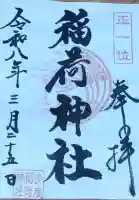 正一位
奉拝
稲荷神社
令和八年三月二十五日